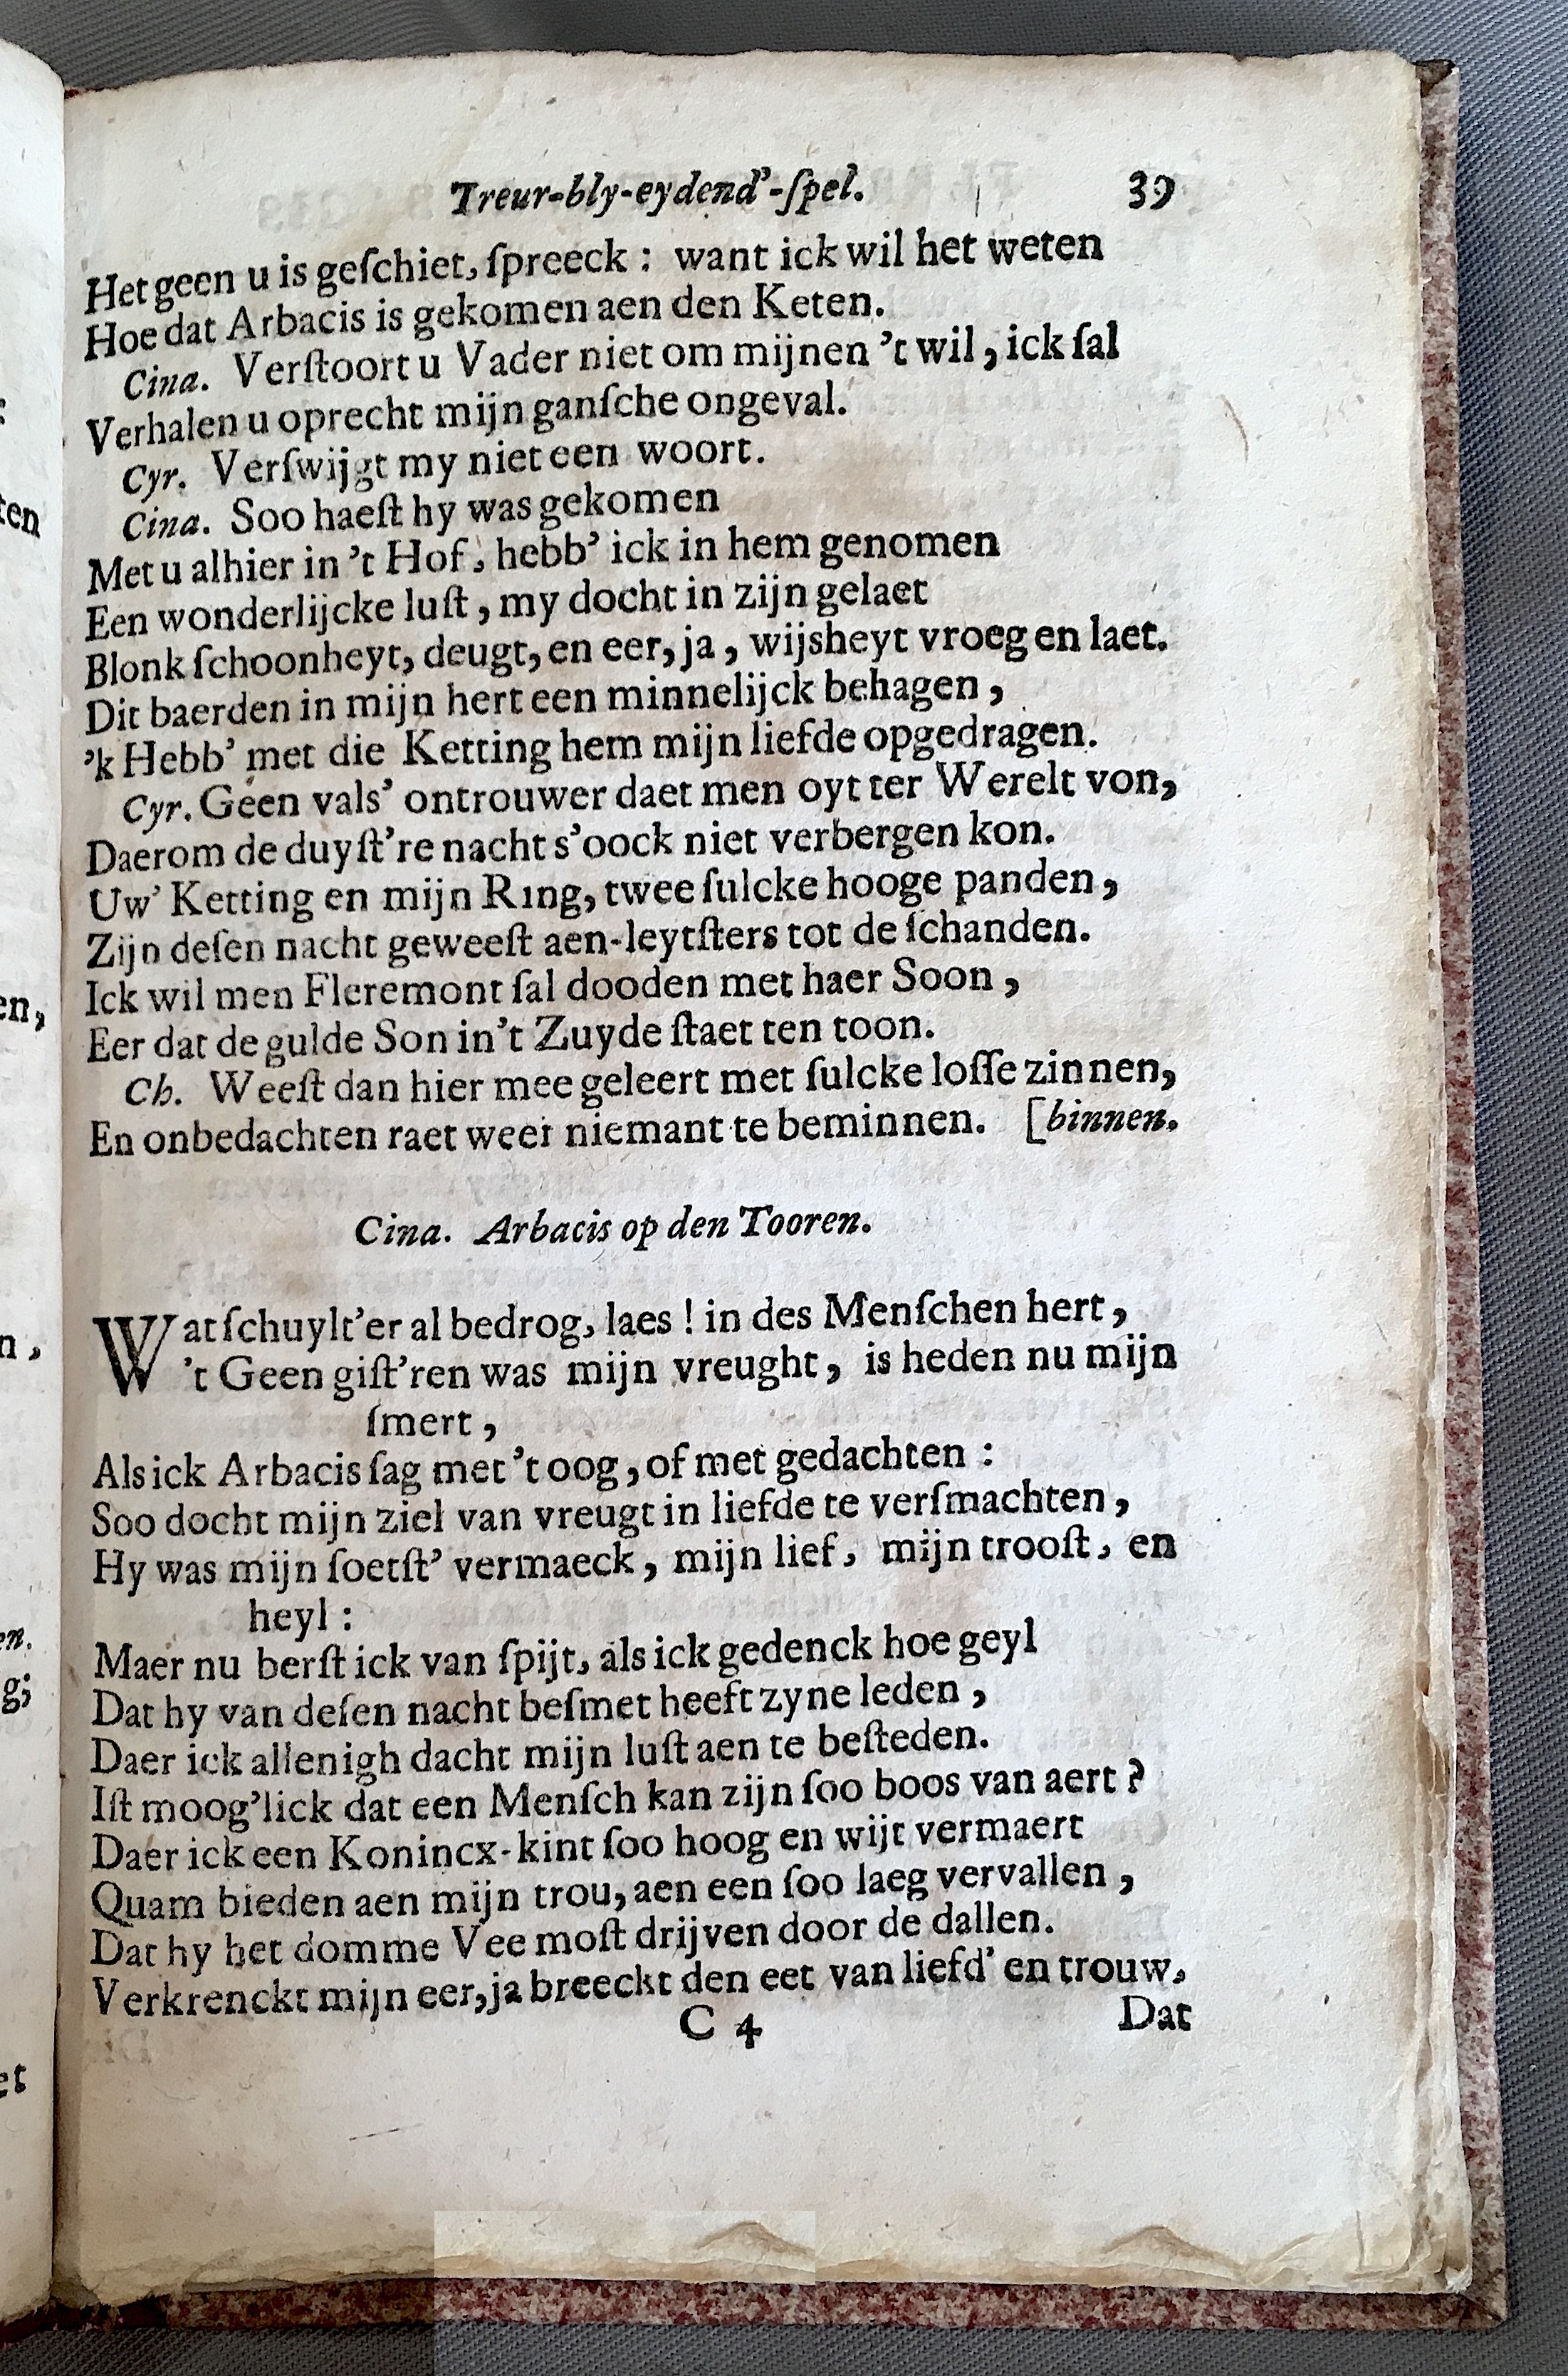 Treur-bly-eydend’-ſpel. 39
Het geen u is geſchiet, ſpreeck : want ick wil het weten
Hoe dat Arbacis is gekomen aen den Keten.
Cina. Verſtoort u Vader niet om mijnen ’t wil, ick ſal
Verhalen u oprecht mijn ganſche ongeval.
Cyr. Verſwijgt my niet een woort.
Cina. Soo haeſt hy was gekomen
Met u alhier in ’t Hof, hebb’ ick in hem genomen
Een wonderlijcke luſt, my docht in zijn gelaet
Blonk ſchoonheyt, deugt, en eer, ja, wijsheyt vroeg en laet.
Dit baerden in mijn hert een minnelijck behagen,
’k Hebb’ met die Ketting hem mijn liefde opgedragen.
Cyr. Geen vals’ ontrouwer daet men oyt ter Werelt von,
Daerom de duyſt’re nacht s’oock niet verbergen kon.
Uw’ Ketting en mijn Ring, twee ſulcke hooge panden,
Zijn deſen nacht geweeſt aen-leytſters tot de ſchanden.
Ick wil men Fleremont ſal dooden met haer Soon,
Eer dat de gulde Son in’t Zuyde ſtaet ten toon.
Ch. Weeſt dan hier mee geleert met ſulcke loſſe zinnen,
En onbedachten raet weer niemant te beminnen. [binnen.
Cina. Arbacis op den Tooren.
Wat ſchuylt’er al bedrog, laes ! in des Menſchen hert,
’t Geen giſt’ren was mijn vreught, is heden nu mijn
ſmert,
Als ick Arbacis ſag met ’t oog, of met gedachten :
Soo docht mijn ziel van vreugt in liefde te verſmachten,
Hy was mijn ſoetſt’ vermaeck, mijn lief, mijn trooſt, en
heyl :
Maer nu berſt ick van ſpijt, als ick gedenck hoe geyl
Dat hy van deſen nacht beſmet heeft zyne leden,
Daer ick allenigh dacht mijn luſt aen te beſteden.
Iſt moog’lick dat een Menſch kan zijn ſoo boos van aert ?
Daer ick een Konincx-kint ſoo hoog en wijt vermaert
Quam bieden aen mijn trou, aen een ſoo laeg vervallen,
Dat hy het domme Vee moſt drijven door de dallen.
Verkrenckt mijn eer, ja breeckt den eet van liefd’ en trouw,
C 4 Dat